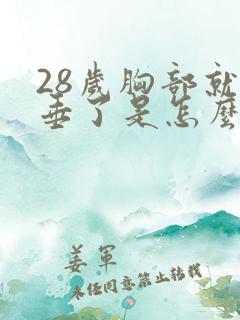 28歲胸部就
垂了是怎麼
姜軍
未任同意禁止转载